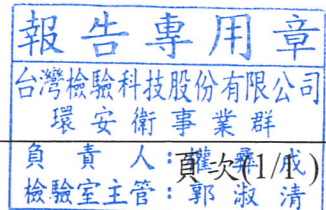 報告專用章
台灣檢驗科技股份有限公司
環安衛事業群
負責人:權彝成
頁次(1/1)
檢驗室主管:郭淑清